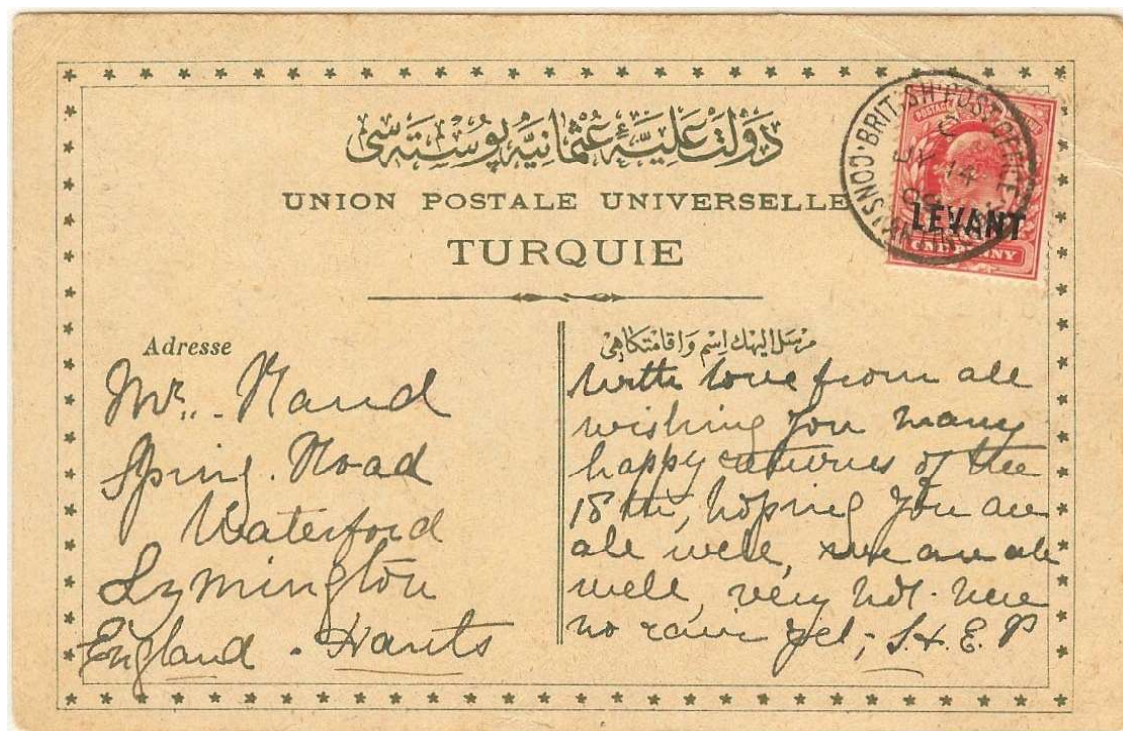 دولت عليۀ عثمانيه پوسته سی
UNION POSTALE UNIVERSELLE
TURQUIE
BRITISH POST OFFICE CONSTANTINOPLE
C
JY 14
09
POSTAGE
LEVANT
ONE PENNY
Adresse
Mr. Hand
Spring Road
Waterford
Lymington
England . Hants
مرسل اليهك اسم و اقامتكاهی
With love from all
wishing you many
happy returns of the
18th, hoping you are
all well, we are all
well, very hot here
no rain yet, S.H.E.P